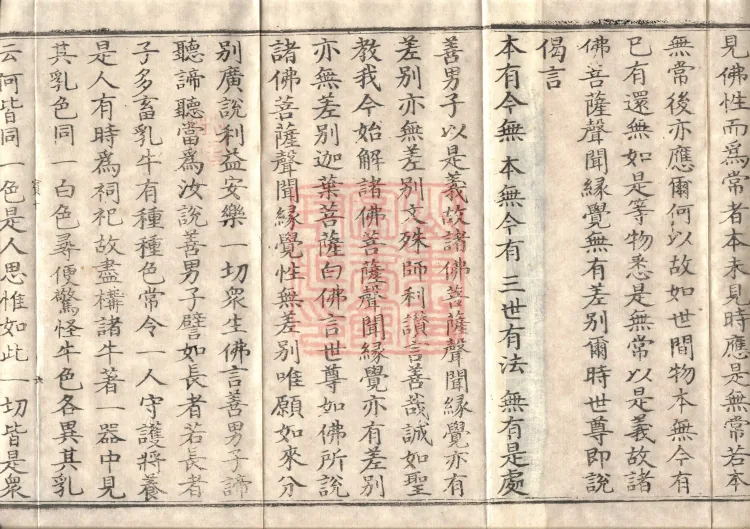 見佛性而爲常者本未見時應是無常若本
無常後亦應爾何以故如世間物本無今有
已有還無如是等物悉是無常以是義故諸
佛菩薩聲聞緣覺無有差別爾時世尊即說
偈言
本有今無 本無今有 三世有法 無有是處
善男子以是義故諸佛菩薩聲聞緣覺亦有
差別亦無差別文殊師利讚言善哉誠如聖
教我今始解諸佛菩薩聲聞緣覺亦有差別
亦無差別迦葉菩薩白佛言世尊如佛所說
諸佛菩薩聲聞緣覺性無差別唯願如來分
別廣說利益安樂一切衆生佛言善男子諦
聽諦聽當爲汝說善男子譬如長者若長者
子多畜乳牛有種種色常令一人守護將養
是人有時爲祠祀故盡構諸牛著一器中見
其乳色同一白色尋便驚怪牛色各異其乳
云何皆同一色是人思惟如此一切皆是衆